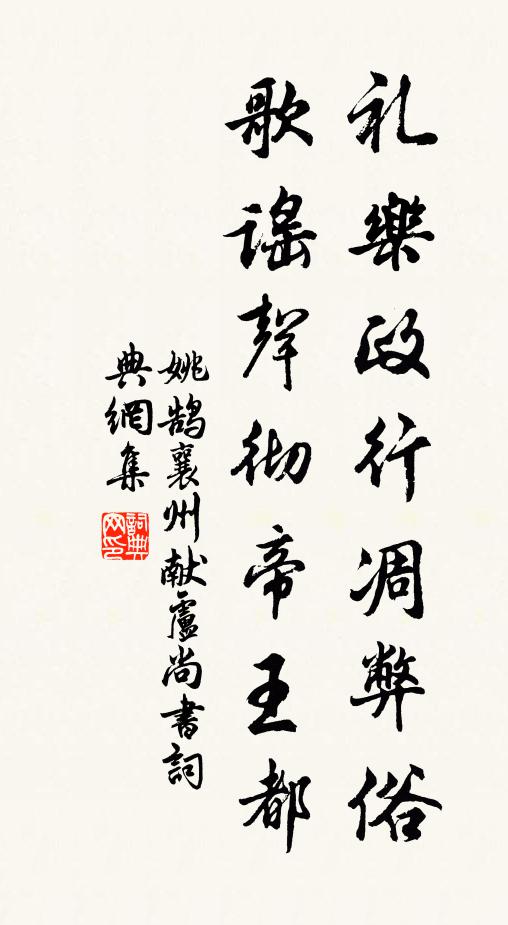 礼樂政行凋弊俗
歌謡聲彻帝王都
姚鹄襄州献盧尚書詞
典網集
詞典网印